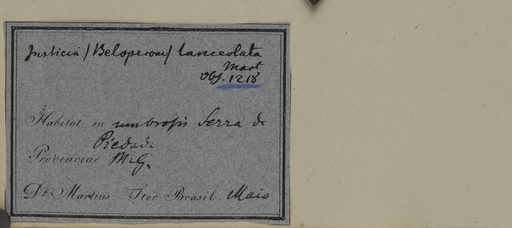 Justicia / Beloperone / lanceolata
Mart
Obs. 1218
Habitat in umbrosis Serra da
Piedade
Provinciae M.G.
Dr. Martius Iter Brasil. Maio